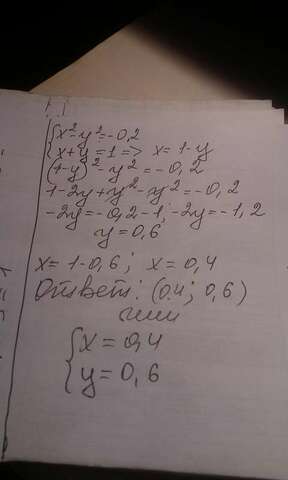 {x²-y²=-0,2
{x+y=1 => x=1-y
(1-y)²-y²=-0,2
1-2y+y²-y²=-0,2
-2y=-0,2-1; -2y=-1,2
y=0,6
x=1-0,6; x=0,4
Ответ: (0.4; 0,6)
или
{x=0,4
{y=0,6